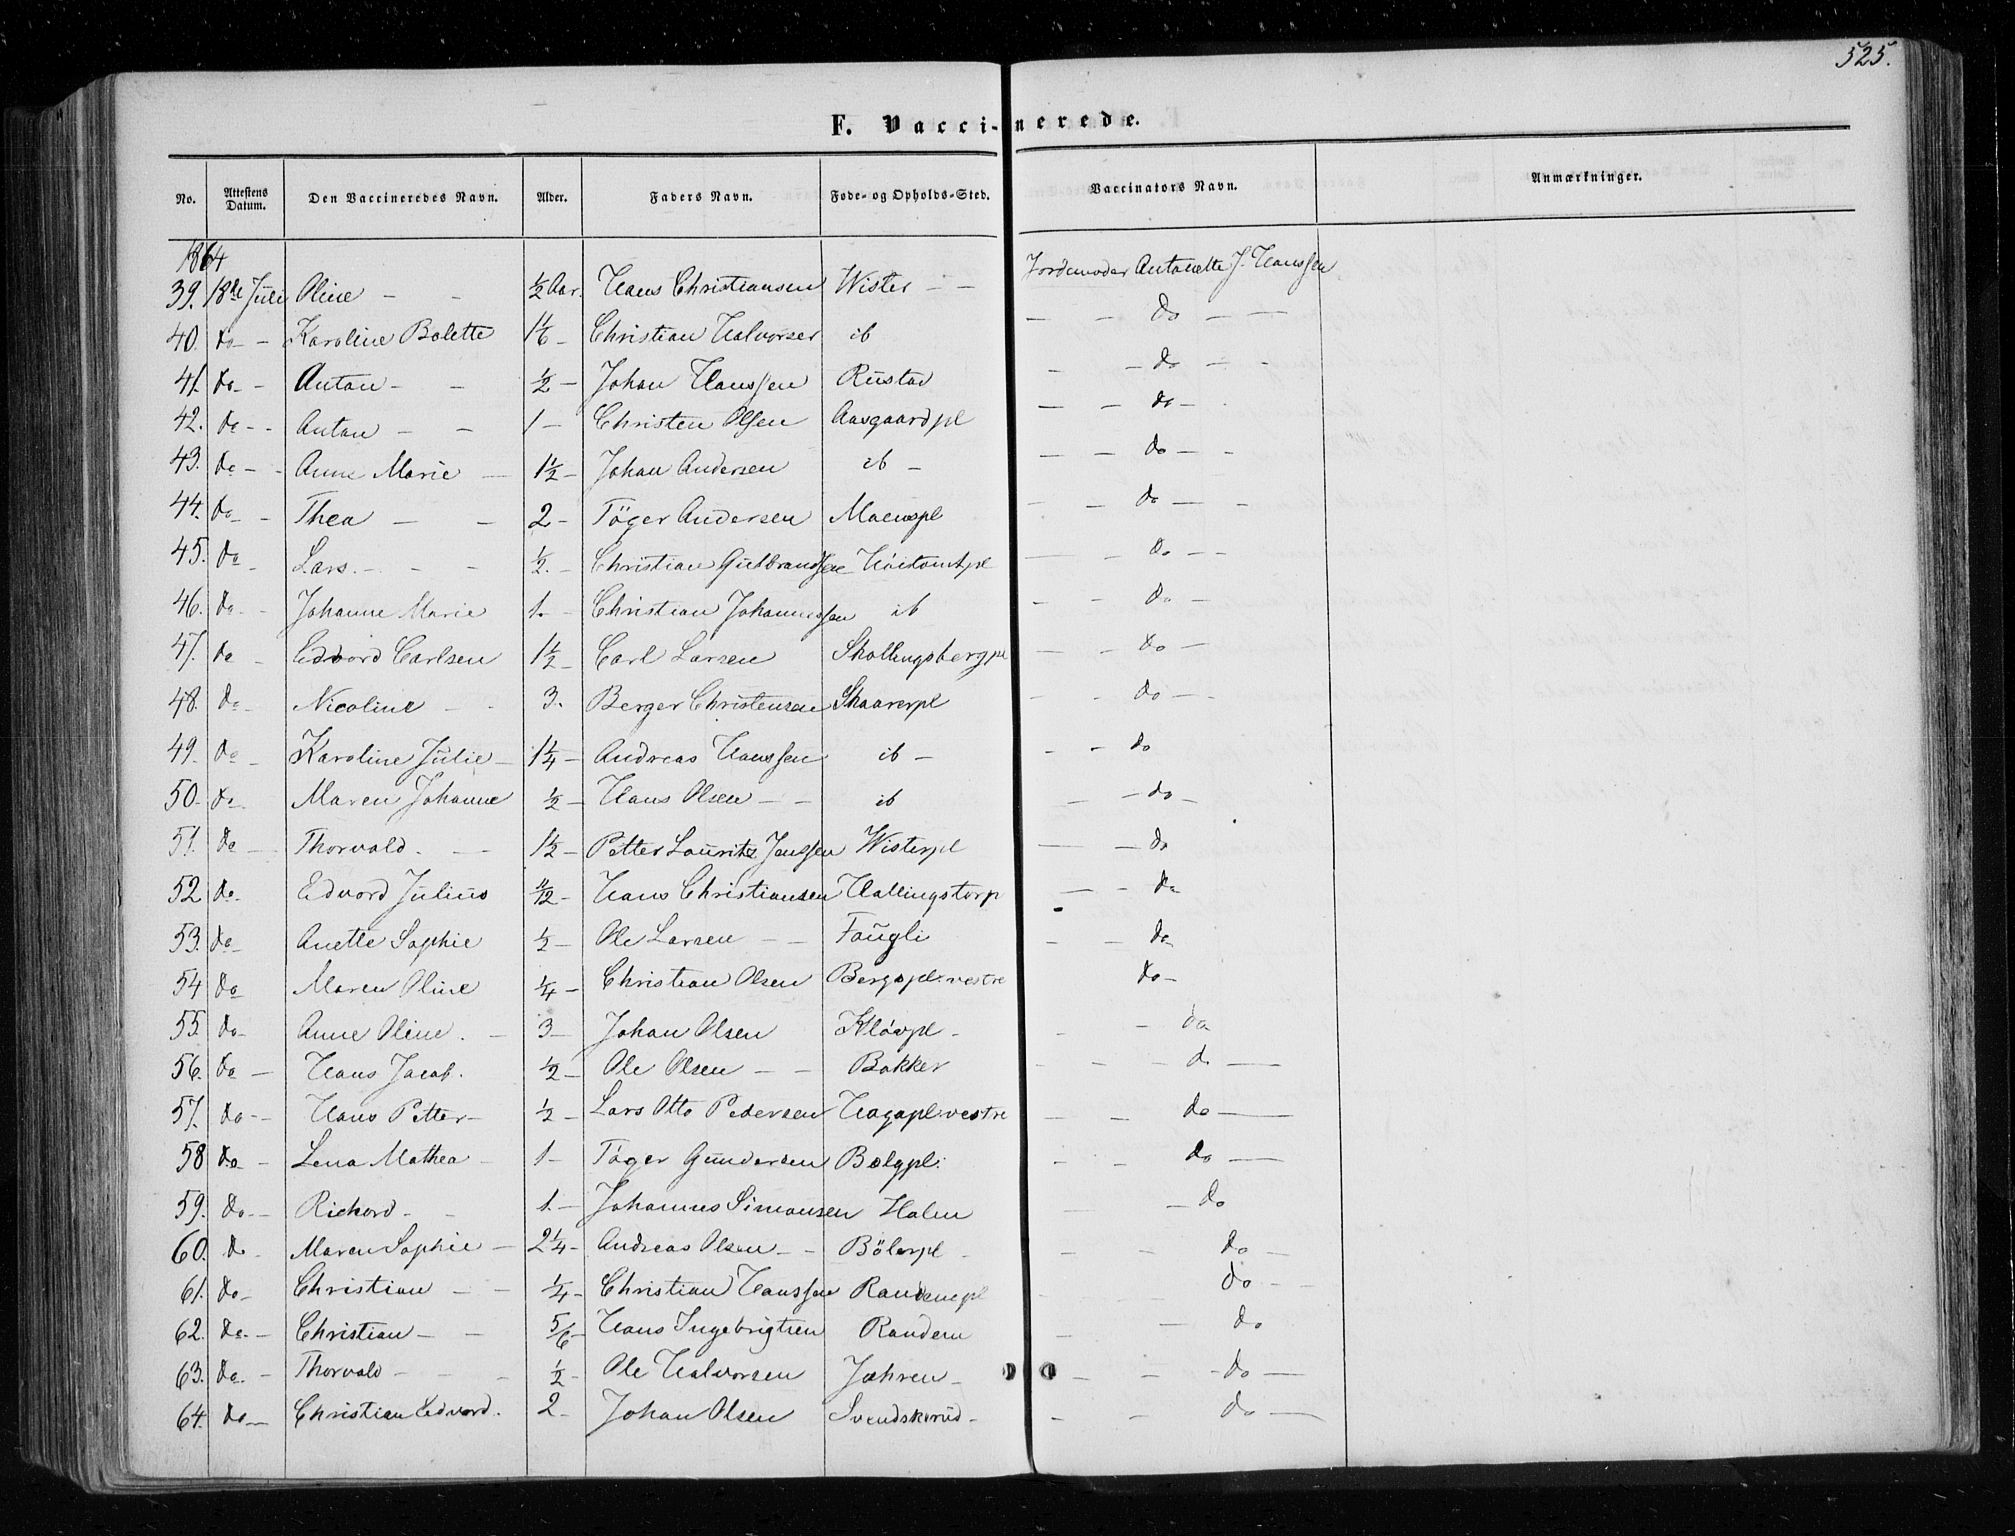 525.
F. Vaccinerede.
No. Attestens Datum. Den Vaccineredes Navn. Alder. Faders Navn. Føde- og Opholds-Sted. Vaccinators Navn. Anmærkninger.
1864
39. 18de Juli Oline - - ½ Aar. Hans Christiansen Wister - - Jordemoder Antonette J. Hanssen
40. do - - Karoline Bolette 1 1/6 - Christian Halvorsen ib - - do - -
41. do - - Anton - - ½ - Johan Hanssen Rustad - - do - -
42. do - - Anton - - 1 - Christen Olsen Aasgaardpl - - do - -
43. do - - Anne Marie - 1½ - Johan Andersen ib - - - do - -
44. do - - Thea - - 2 - Töger Andersen Moenspl - - do - -
45. do - Lars. - - - ½. - Christian Gulbrandsen Høitomtpl - do - -
46. do - - Johanne Marie 1. - Christian Johannessen ib - - do -
47. do - Edvard Carlsen 1½ - Carl Larsen Skollingsbergpl - - do -
48. do - Nicoline - - 3. Berger Christensen Skaarerpl - - do - -
49. do - Karoline Julie - 1¼ - Andreas Hanssen ib - - - do
50. do - Maren Johanne ½ - Hans Olsen - - ib - - do -
51. do - Thorvald. - - 1½ - Petter Lauritz Jenssen Wisterpl - - do
52 do - Edvard Julius 11/12 - Hans Christiansen Hallingstorp - - do
53. do - Anette Sophie ½ - Ole Larsen - - Fougli - - do
54 do Maren Oline ¼ - Christian Olsen Bergspl. vestre do -
55. do - Anne Oline. - 3 - Johan Olsen Kløvpl - - - do
56. do - Hans Jacob. ½ - Ole Olsen - - Bakker - - - do -
57. do - - Hans Petter - ½ - Lars Otto Pedersen Hagapl. vestre - - do -
58 do - Lena Mathea - 1 - Töger Gundersen Bolgpl. - - do -
59. do - - Richard - - 1. - Johannes Simonsen Holen - - do
60. do - Maren Sophie - 2¼ - Andreas Olsen - - Bölerpl - - - do -
61. do - Christian - - ¼ - Christian Hanssen Randempl - - do - -
62. do. - Christian - - 5/6 - Hans Ingebrigtsen Randem - - do
63. do. - Thorvald - - - ½ - Ole Halvorsen Jahren - - - - do -
64. do - Christian Edvard. 2 - Johan Olsen Svendskerud - - - do -